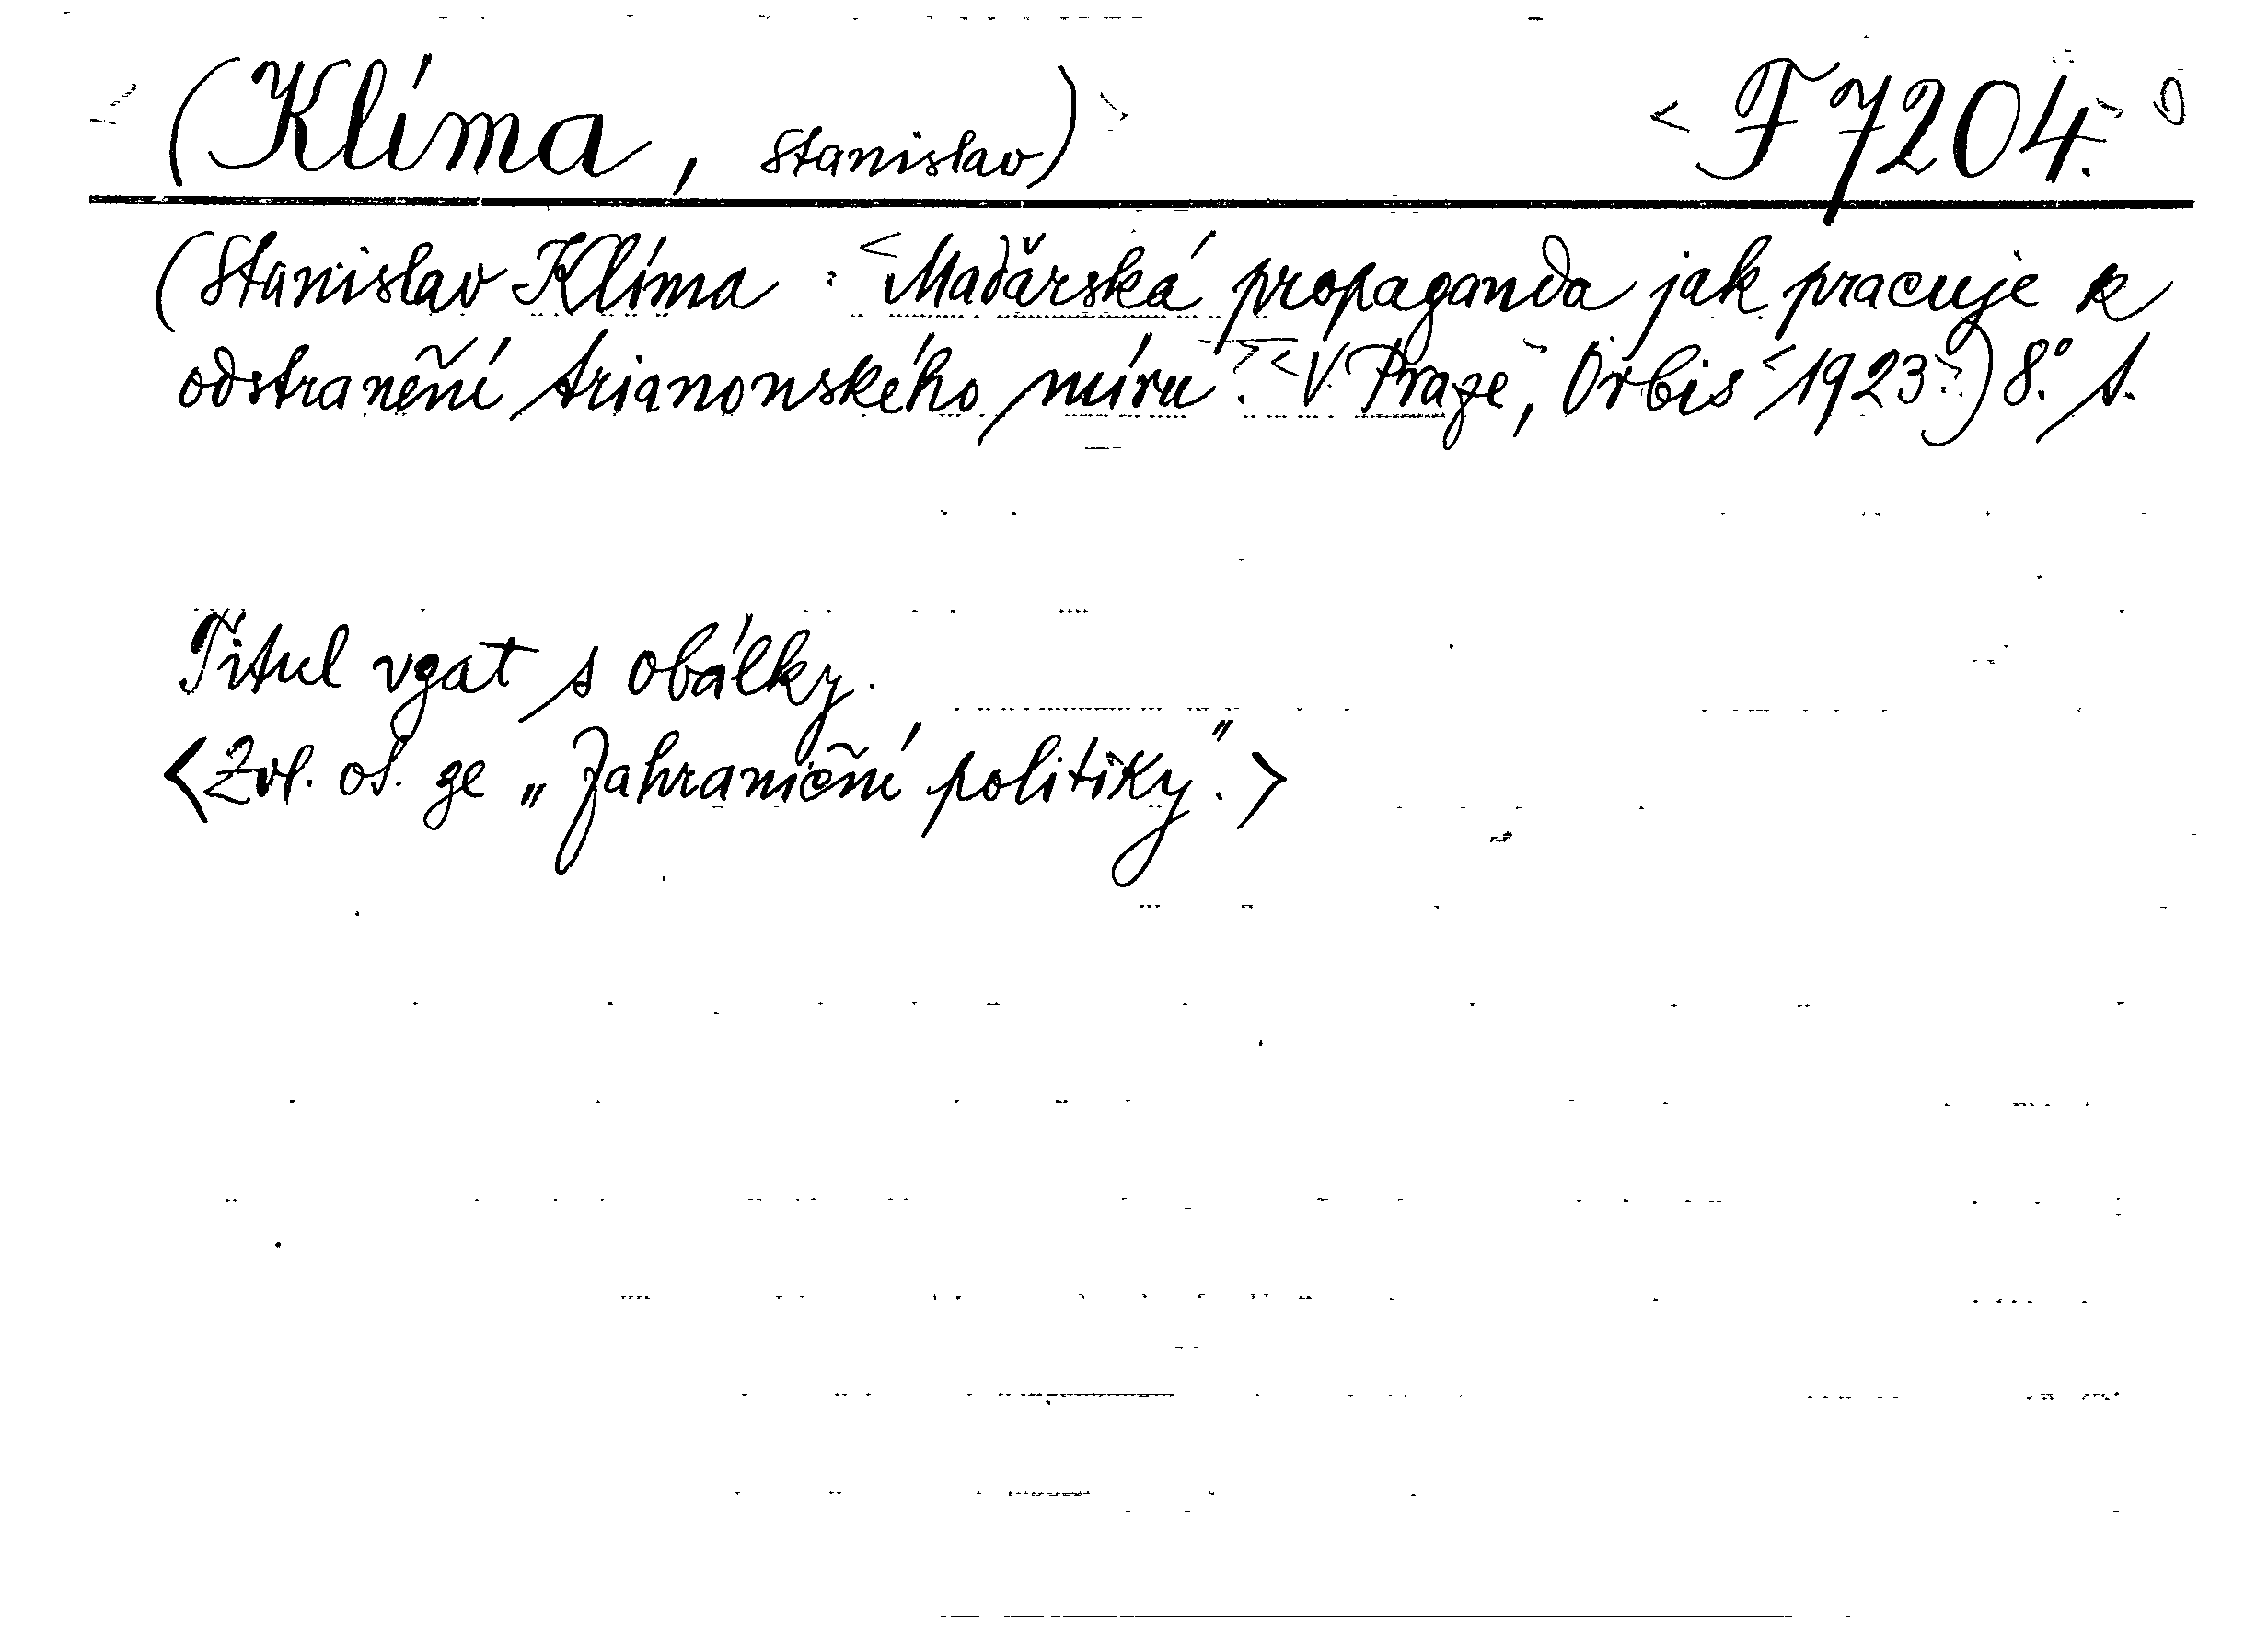 (Klíma, Stanislav) <F 7204.>
(Stanislav Klíma: <Maďarská propaganda jak pracuje k
odstranění trianonského míru.> <V Praze>, Orbis <1923.>) 8.° s.
Titul vzat s obálky.
<Zvl. ot. ze „Zahraniční politiky“.>